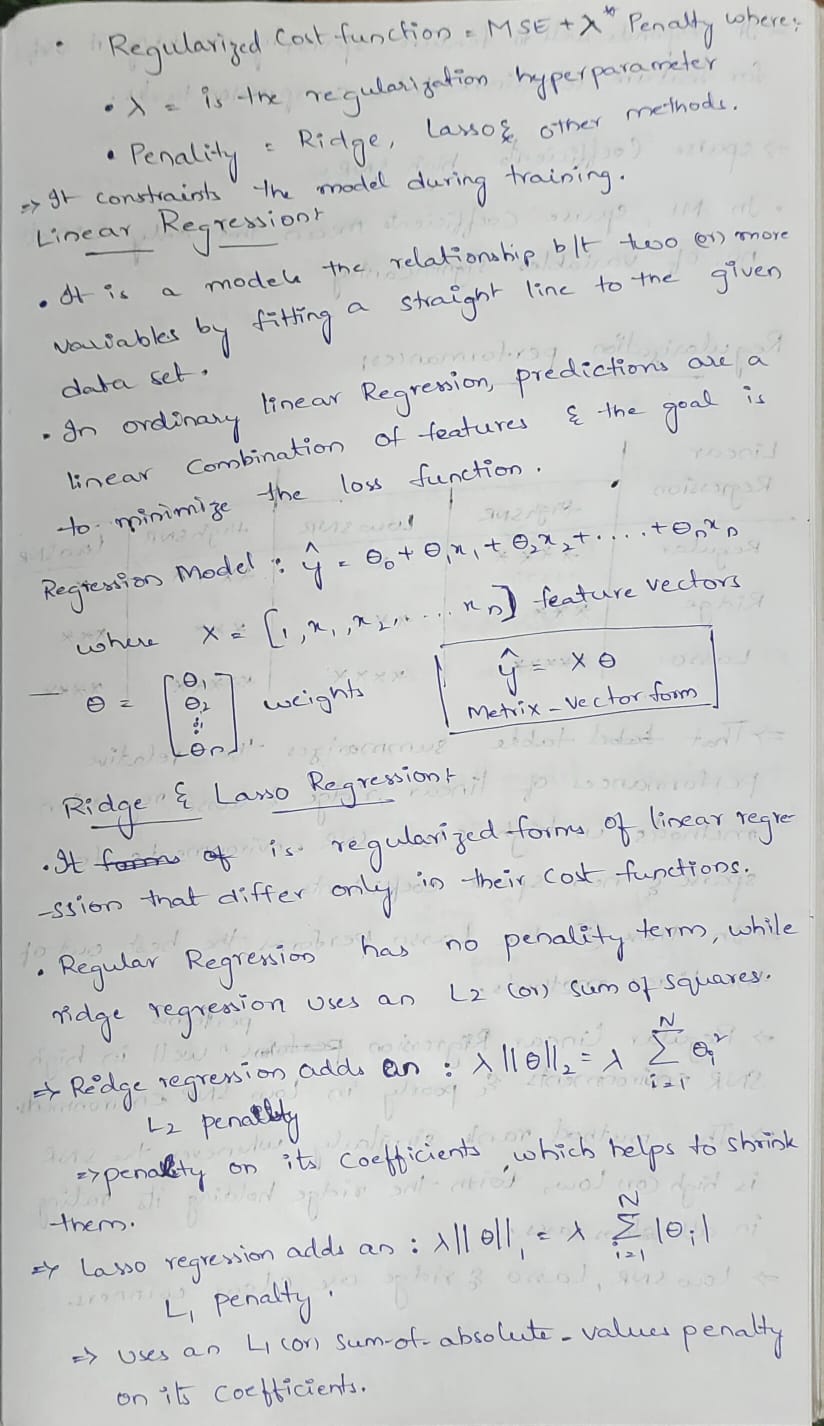 • Regularized Cost function = MSE + λ* Penalty where:
• λ = is the regularization hyperparameter
• Penality = Ridge, Lasso & other methods.
⇒ It constraints the model during training.
Linear Regression:
• It is a models the relationship b/t two (or) more
variables by fitting a straight line to the given
data set.
• In ordinary linear Regression, predictions are a
linear Combination of features & the goal is
to minimize the loss function.
Regression Model : ŷ = θ₀ + θ₁x₁ + θ₂x₂ + .... + θₙxₙ
where X = [1, x₁, x₂, .... xₙ] feature vectors
— θ = [θ₁ θ₂ ⋮ θₙ] weights
ŷ = Xθ
Metrix - Vector form
Ridge & Lasso Regression:
• It ~~forms of~~ is regularized forms of linear regre-
-ssion that differ only in their cost functions.
• Regular Regression has no penality term, while
ridge regression uses an L2 (or) sum of squares.
⇒ Redge regression adds an : λ||θ||₂ = λ Σᵢ₌₁ᴺ θᵢ²
L2 penalty
⇒ penalty on its Coefficients, which helps to shrink
them.
⇒ Lasso regression adds an : λ||θ||₁ = λ Σᵢ₌₁ᴺ |θᵢ|
L₁ penalty.
⇒ uses an L1 (or) sum-of-absolute-values penalty
on its Coefficients.